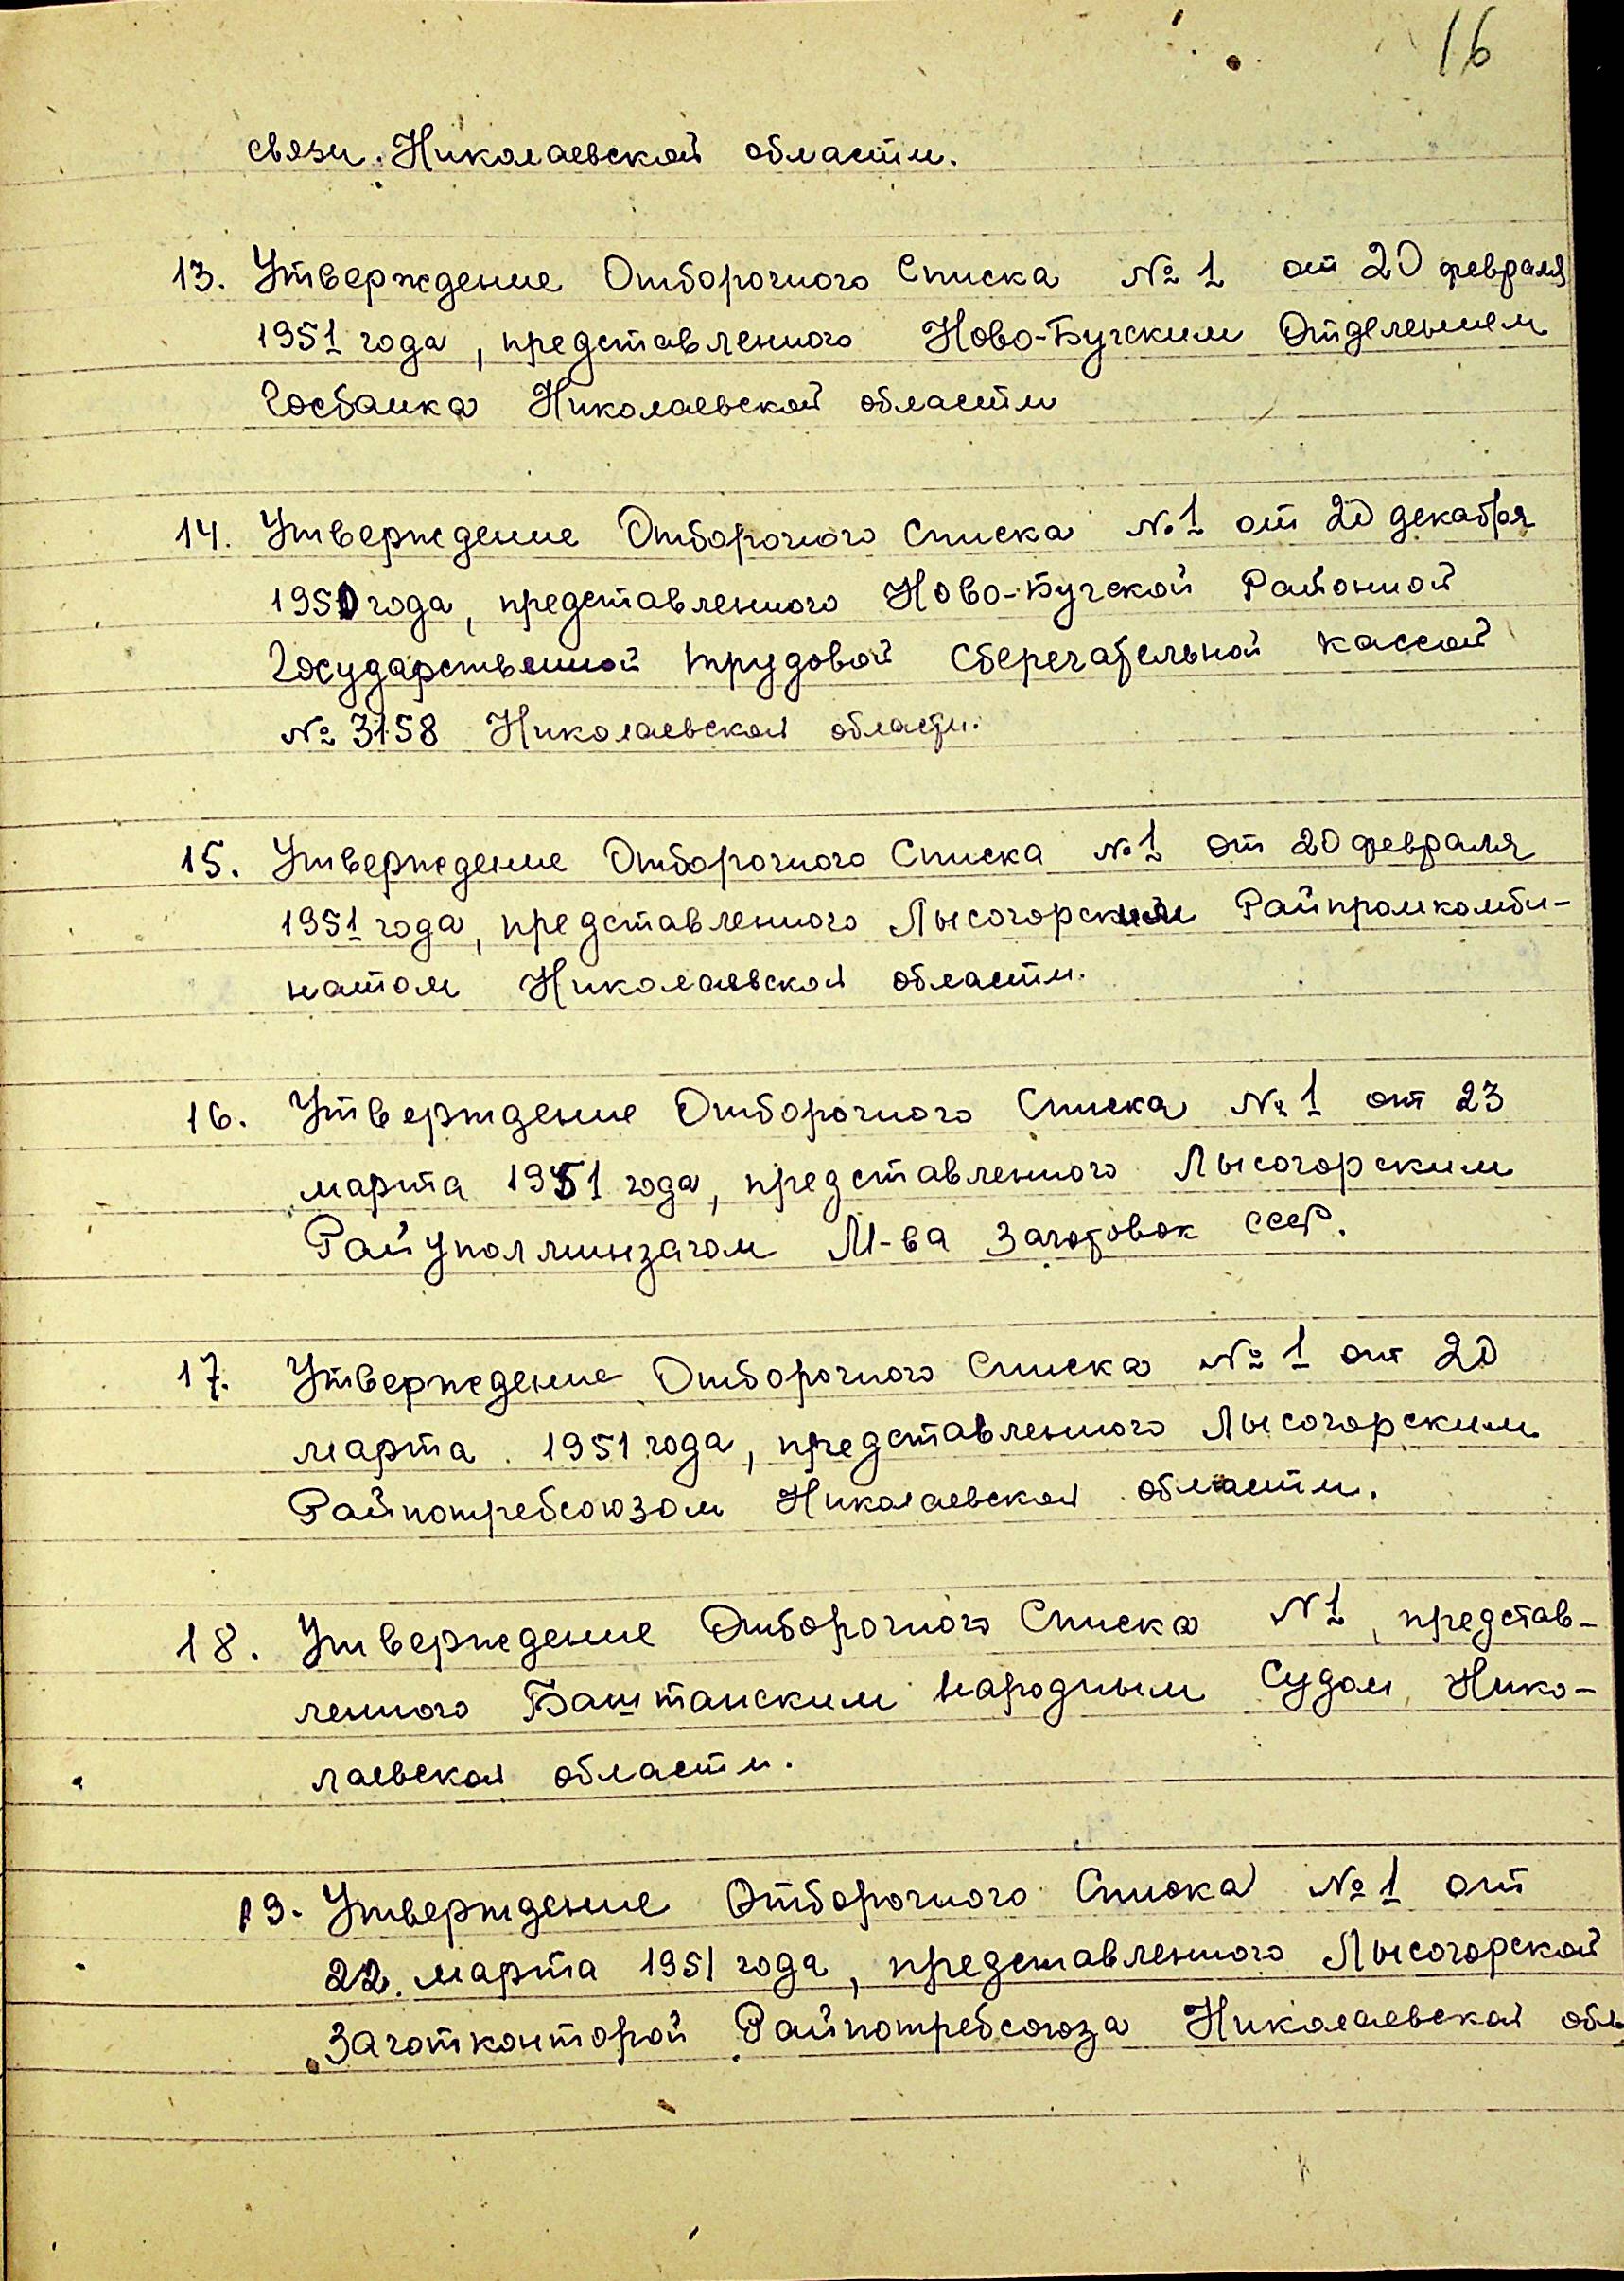 16
связи. Николаевской области.
13. Утверждение Отборочного Списка № 1 от 20 февраля
1951 года, представленного Ново-Бугским Отделением
Госбанка Николаевской области
14. Утверждение Отборочного Списка №1 от 20 декабря
1950 года, представленного Ново-Бугской Районной
Государственной трудовой сберегательной кассой
№ 3158 Николаевской области.
15. Утверждение Отборочного Списка №1 от 20 февраля
1951 года, представленного Лысогорским Райпромкомби-
натом Николаевской области.
16. Утверждение Отборочного Списка № 1 от 23
марта 1951 года, представленного Лысогорским
Райуполминзагом М-ва Заготовок СССР.
17. Утверждение Отборочного Списка № 1 от 20
марта 1951 года, представленного Лысогорским
Райпотребсоюзом Николаевской области.
18. Утверждение Отборочного Списка №1, представ-
ленного Баштанским Народным Судом Нико-
лаевской области.
19. Утверждение Отборочного Списка № 1 от
22. марта 1951 года, представленного Лысогорской
Заготконторой Райпотребсоюза Николаевской обл.